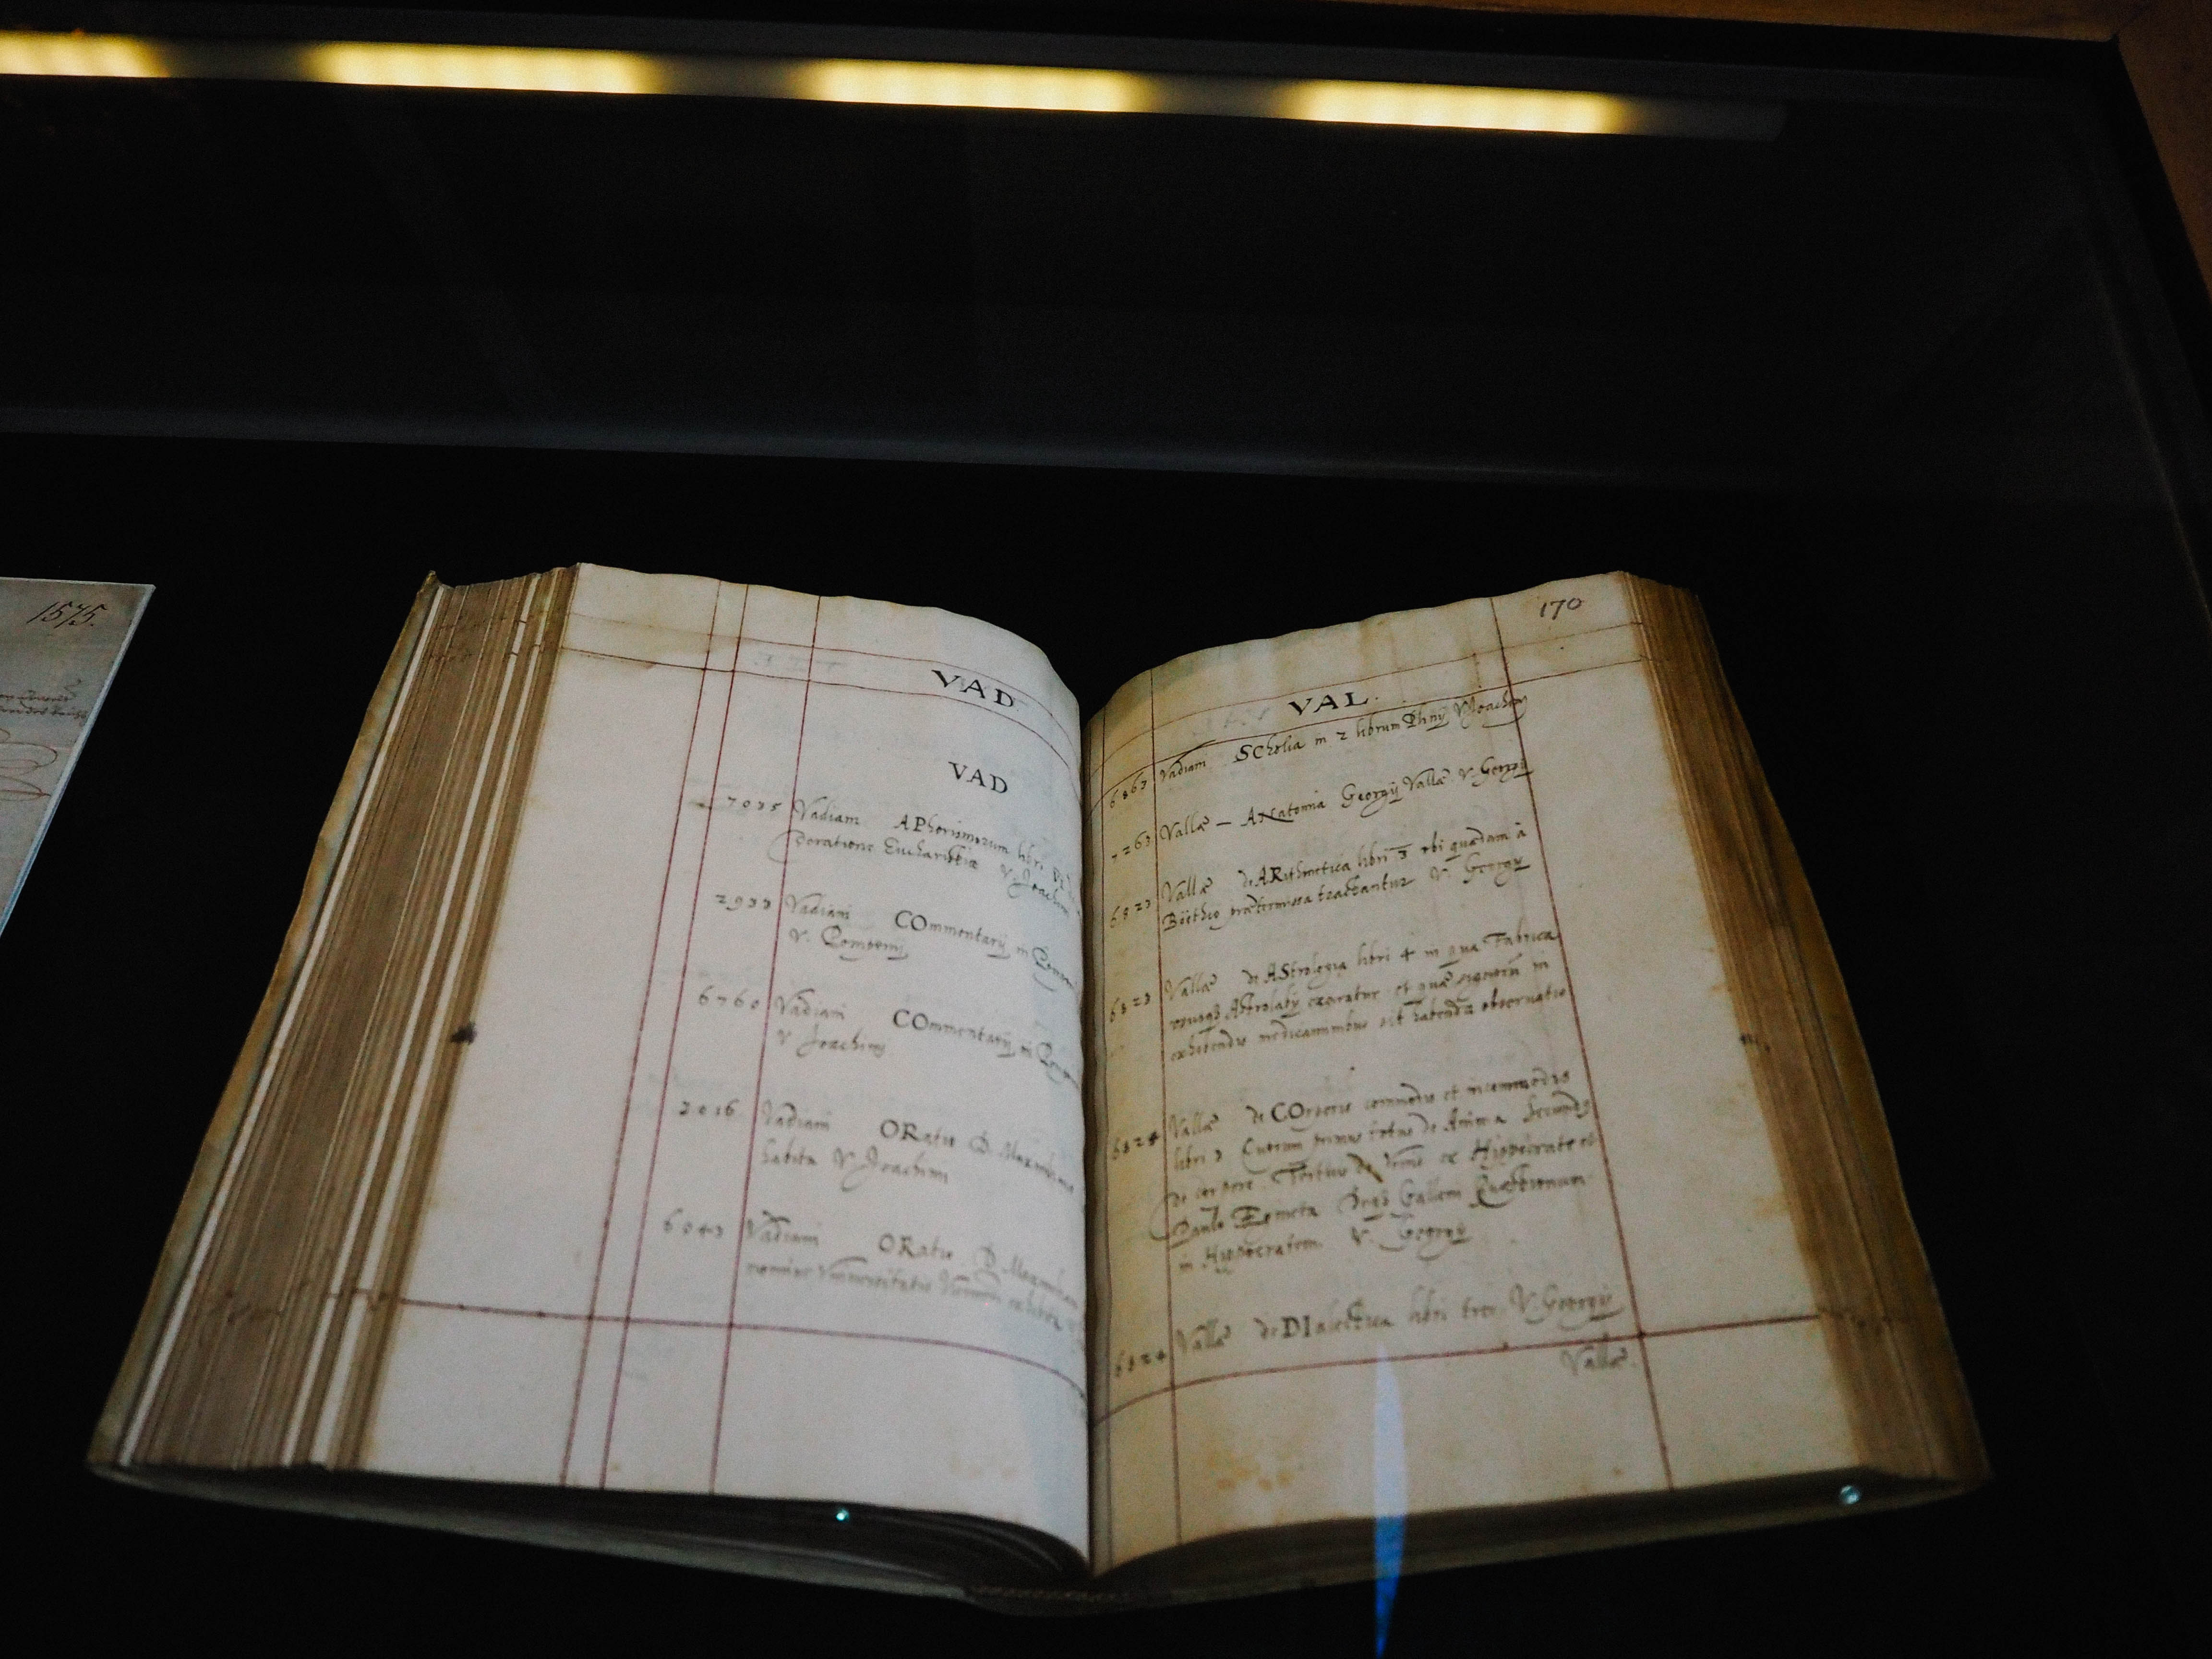 1575.
VAD
VAD
7035 Vadiani APhorismorum libri
Eucharistiæ V. Joachim
2933 Vadiani COmmentarij in
V. Pomponij
6760 Vadiani COmmentarij in
V Joachimj
2016 Vadiani ORatio D. Maximiliano
habita V Joachimi
Vadiani ORatio D. Maximiliano
nomine Vniuersitatis
170
VAL.
6867 Vadiani SCholia in 2 librum Plinij V Joachimj
7263 Vallæ – ANatomia Georgij Vallæ v. Georgij
6823 Vallæ de ARithmetica libri 3 vbi quædam à
Boëthio prætermissa tractantur V. Georgij
6823 Vallæ de AStrologia libri 4 in qua Fabrica
vsusq3 Astrolabij exaratur et quæ signorū in
exhibendis medicaminibus sit habenda obseruatio
6824 Vallæ de COrporis commodis et incommodis
libri 3 Quorum primus totus de Anima Secundus
De corpore Tertius De Vrinis ex Hippocrate et
Paulo Galleni Quæstionum
in Hippocratem V. Georgij
6824 Vallæ de DIalectica libri tres V. Georgij
Vallæ.